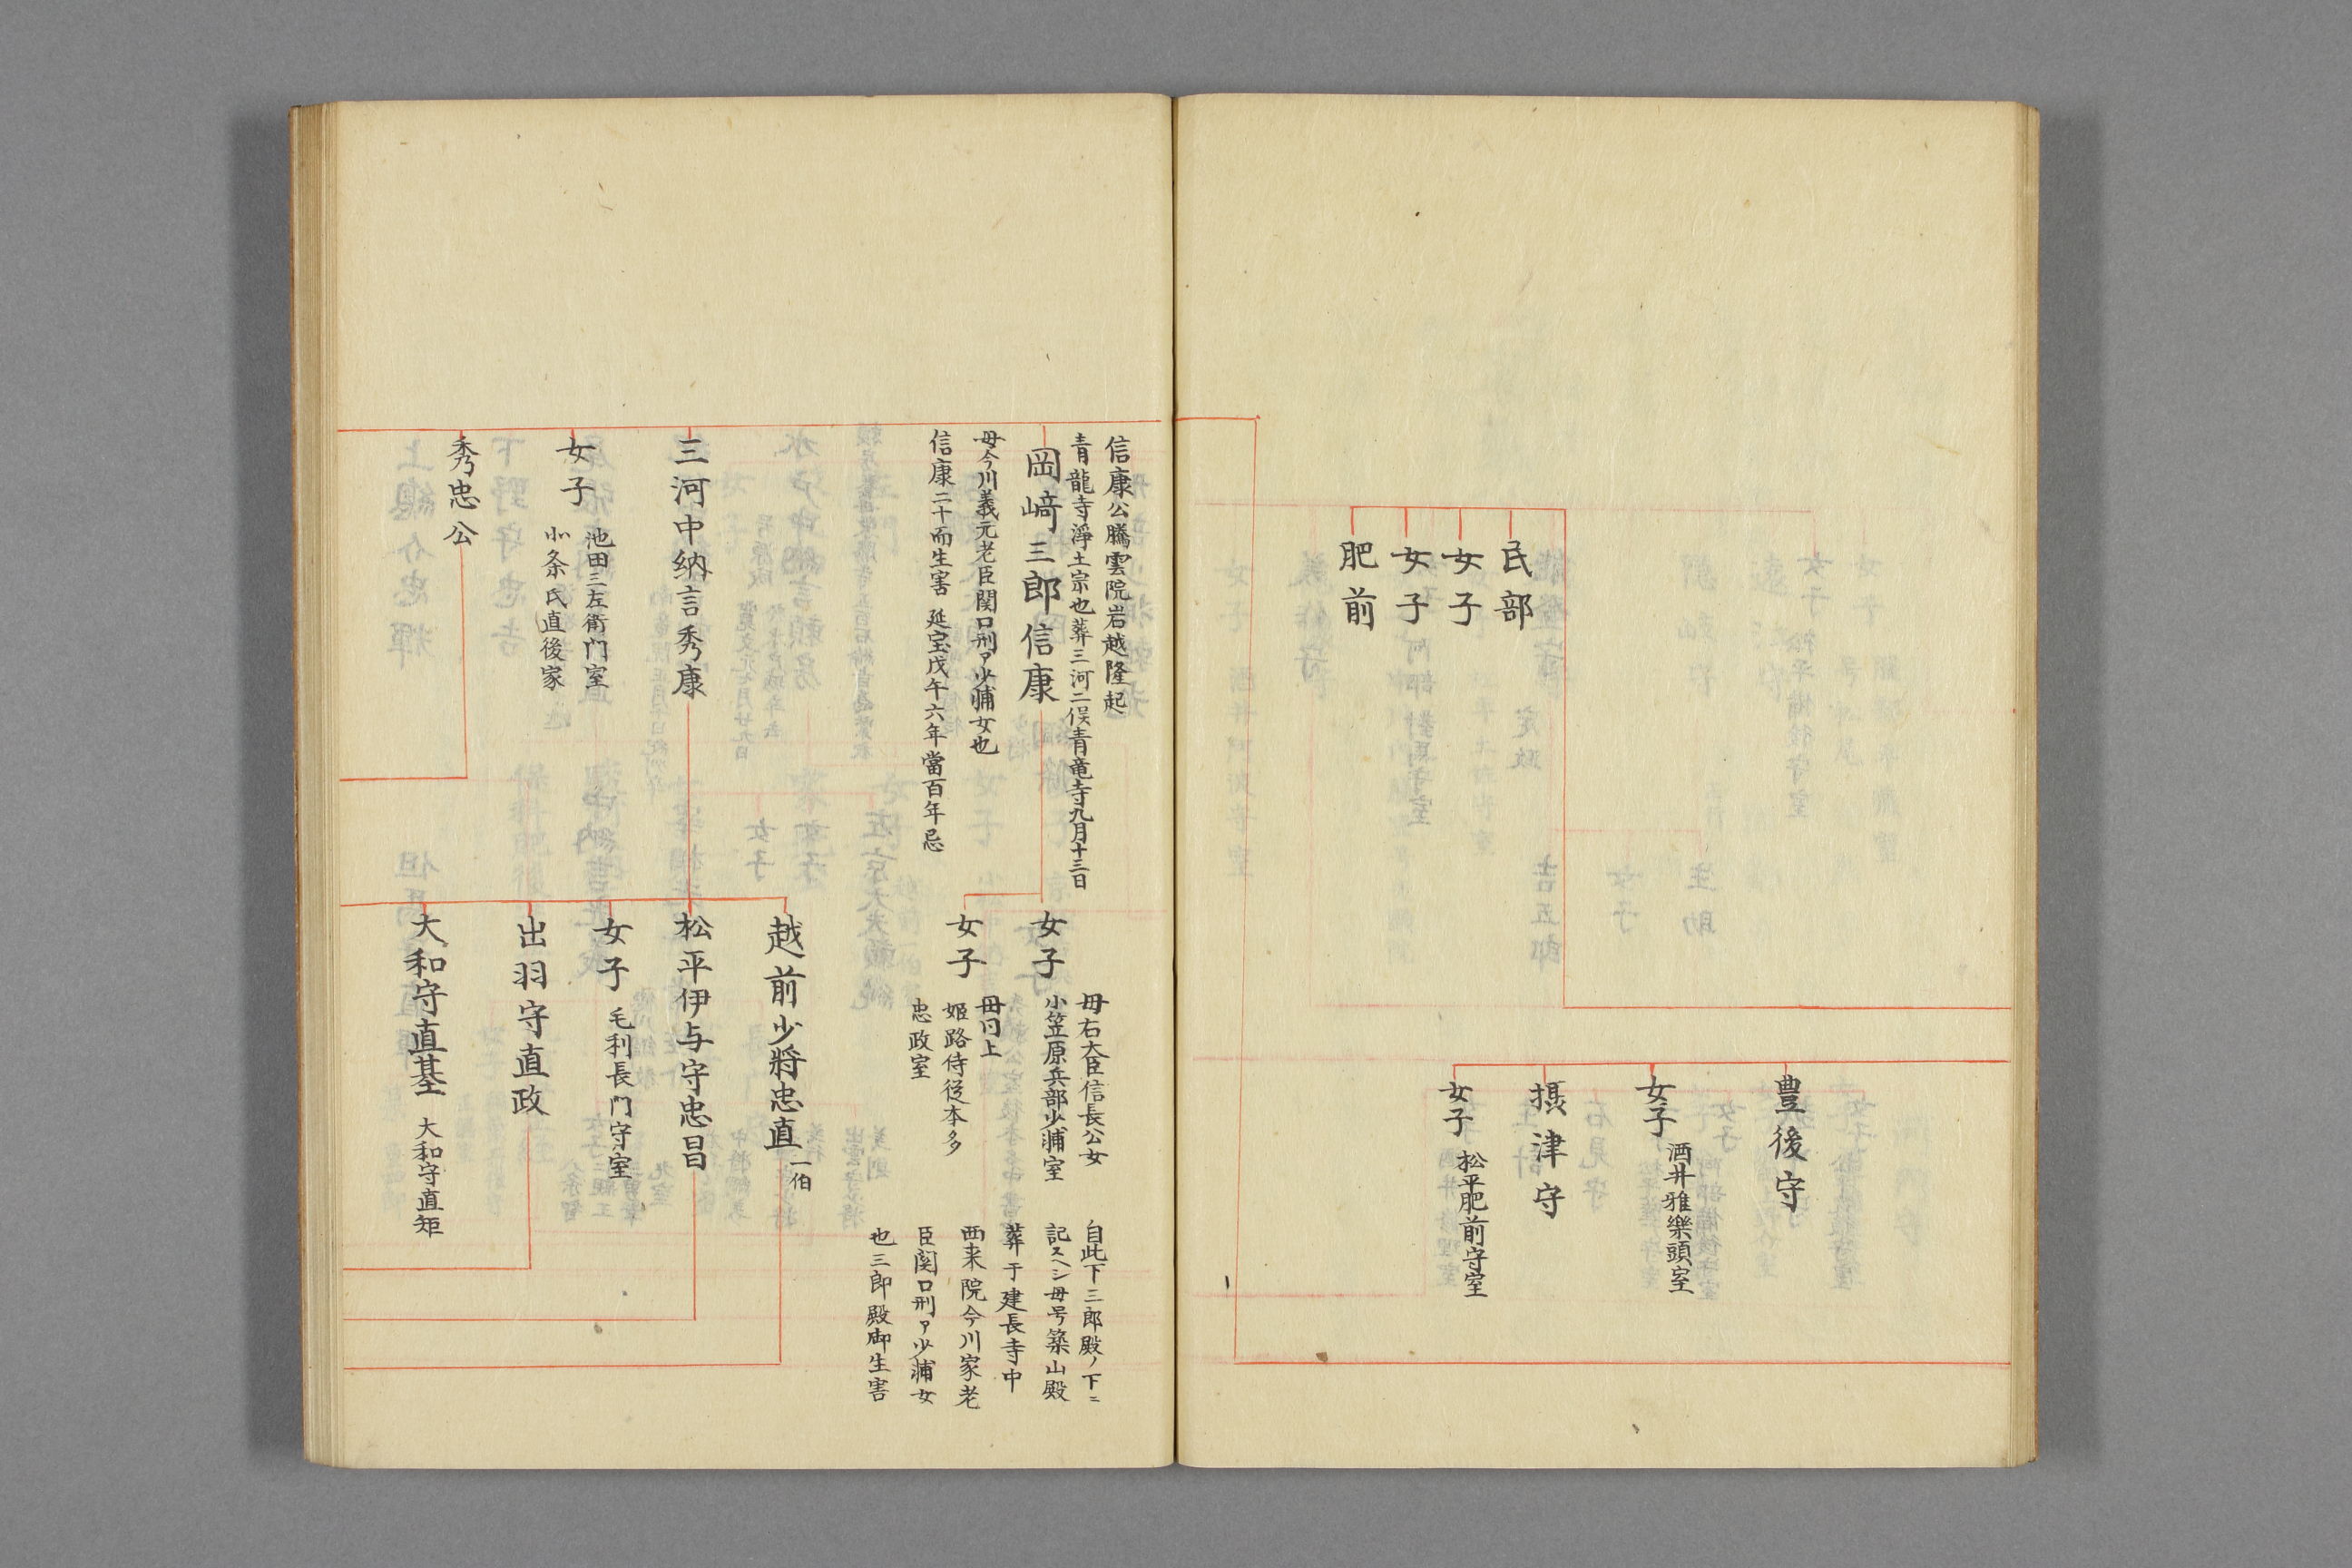 民部
女子
女子
肥前
豊後守
女子
酒井雅樂頭室
摂津守
女子
松平肥前守室
信康公騰雲院岩越隆起
青龍寺淨土宗也葬三河二俣青竜寺九月十三日
岡﨑三郎信康
母今川義元老臣関口刑ア少浦女也
信康二十而生害 延宝戊午六年當百年忌
女子
母右大臣信長公女
小笠原兵部少浦室
女子
母同上
姫路侍従本多
忠政室
自此下三郎殿ノ下ニ
記スヘシ母号築山殿
葬于建長寺中
西来院今川家老
臣関口刑ア少浦女
也三郎殿御生害
三河中納言秀康
越前少將忠直
一伯
松平伊与守忠昌
女子
毛利長門守室
出羽守直政
大和守直基
大和守直矩
女子
池田三左衛門室
北条氏直後家
秀忠公